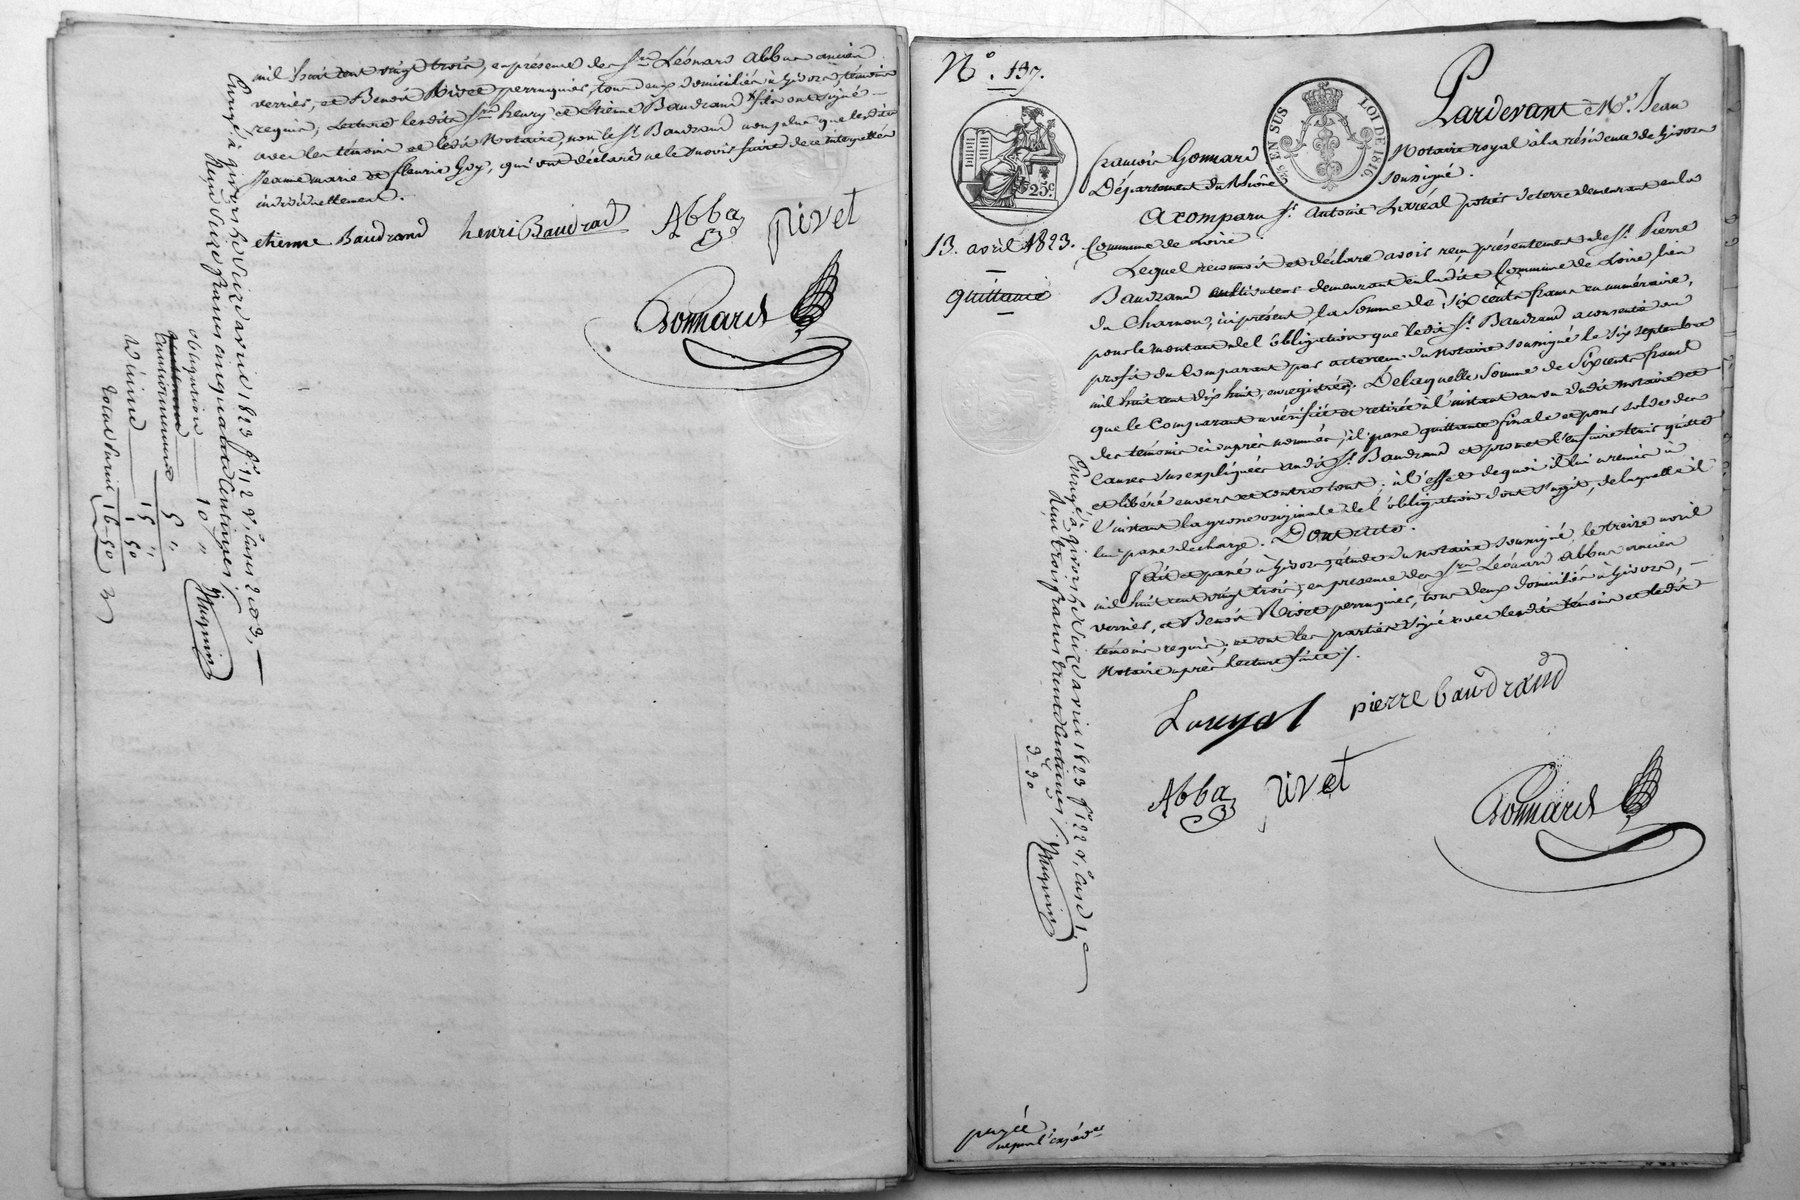 mil huit cent vingt trois, en présence des Srs Léonard Abba ancien
verrier, et Benoit Rivet perruquier, tous deux domiciliés à Givors, témoins
requis, Lecture lesdits Srs henry et Etienne Baudrand fils ont signé
avec les témoins et ledit Notaire, non le Sr. Baudrand non plus que lesdites
Jeanne marie et fleurie Goy, qui ont déclaré ne le savoir faire de ce interpellés
individuellement.
etienne Baudrand henri Baudrand Abba Rivet
Gonnard
Enregé à givors le seize avril 1823 fo 112 Vo Cases 2 et 3,
Reçu seize francs cinquante Centimes,
obligation 10 "
Cautionnement 5 "
15 "
Dixième 1 50
Total 16-50
No. 137.
Pardevant Me. Jean
françois Gonnard Notaire royal à la résidence de Givors
Département du Rhône soussigné.
25c
3c EN SUS LOI DE 1816.
A comparu Sr. Antoine Loréal potier de terre demeurant en la
13. avril 1823. Commune de Loire.
Lequel reconnoit et déclare avoir reçu présentement du Sr. Pierre
quittance
Baudrand cultivateur demeurant en ladite Commune de Loire, lieu
du Charnou, ici présent, la Somme de Six cents francs en numéraire,
pour le montant de l'obligation que ledit Sr. Baudrand a consentie au
profit du Comparant par acte reçu du Notaire soussigné le six septembre
mil huit cent dix huit, enregistrée; De laquelle Somme de Six cents francs
que le Comparant a vérifiée et retirée à l'instant au vu dudit Notaire et
des témoins ci après nommés, il passe quittance finale et pour solde des
causes sus expliquées audit Sr. Baudrand et promet l'en faire tenir quitte
et libéré envers et contre tous; à l'effet de quoi il lui a remis à
l'instant la grosse originale de l'obligation dont s'agit, de laquelle il
lui passe décharge. Dont acte.
fait et passé à Givors, étude du Notaire soussigné, le treize avril
mil huit cent vingt trois, en présence des Srs Léonard Abba ancien
verrier, et Benoit Rivet perruquier, tous deux domiciliés à Givors,
témoins requis, et ont les parties signé avec lesdits témoins et ledit
Notaire après lecture faite.
pierre baudrand
Abba Rivet
Gonnard
Enregé à givors le seize avril 1823 fo 122 Vo Case 1,e
Reçu trois francs trente Centimes
3-30
payée